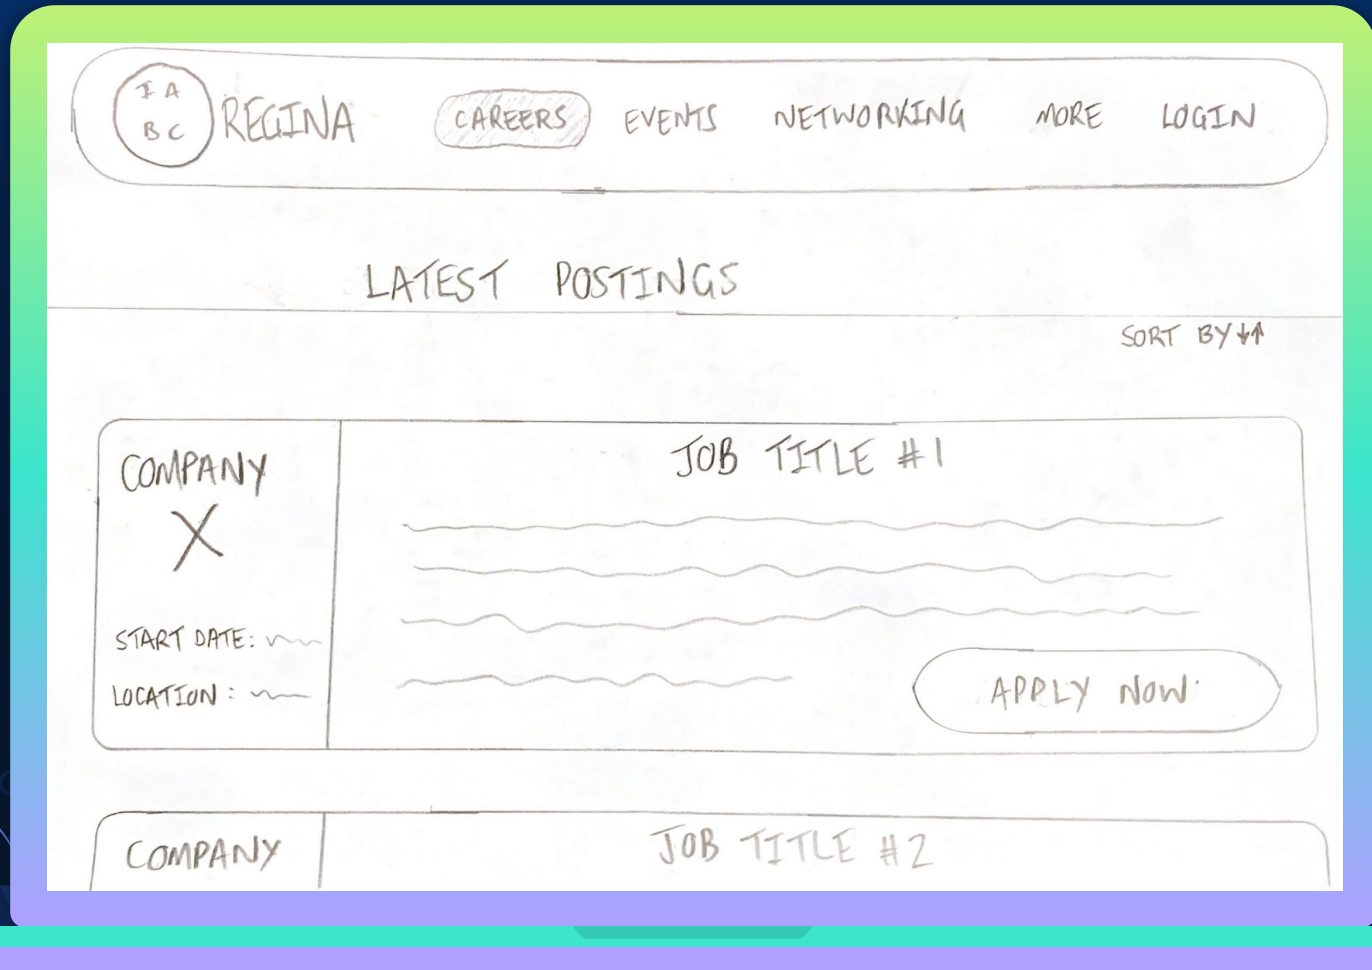 I A
B C
REGINA
CAREERS
EVENTS
NETWORKING
MORE
LOGIN
LATEST POSTINGS
SORT BY ↓↑
COMPANY
X
START DATE:
LOCATION:
JOB TITLE #1
APPLY NOW
COMPANY
JOB TITLE #2